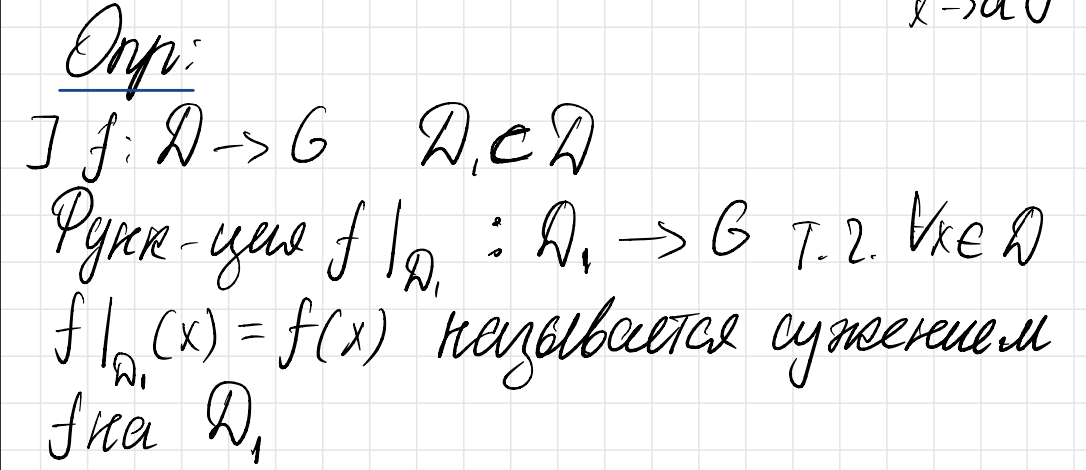 x→a
Опр:
] f: D → G D₁ ⊂ D
Функ-ция f|_D₁ : D₁ → G т.ч. ∀x∈ D
f|_D₁ (x) = f(x) называется сужением
f на D₁